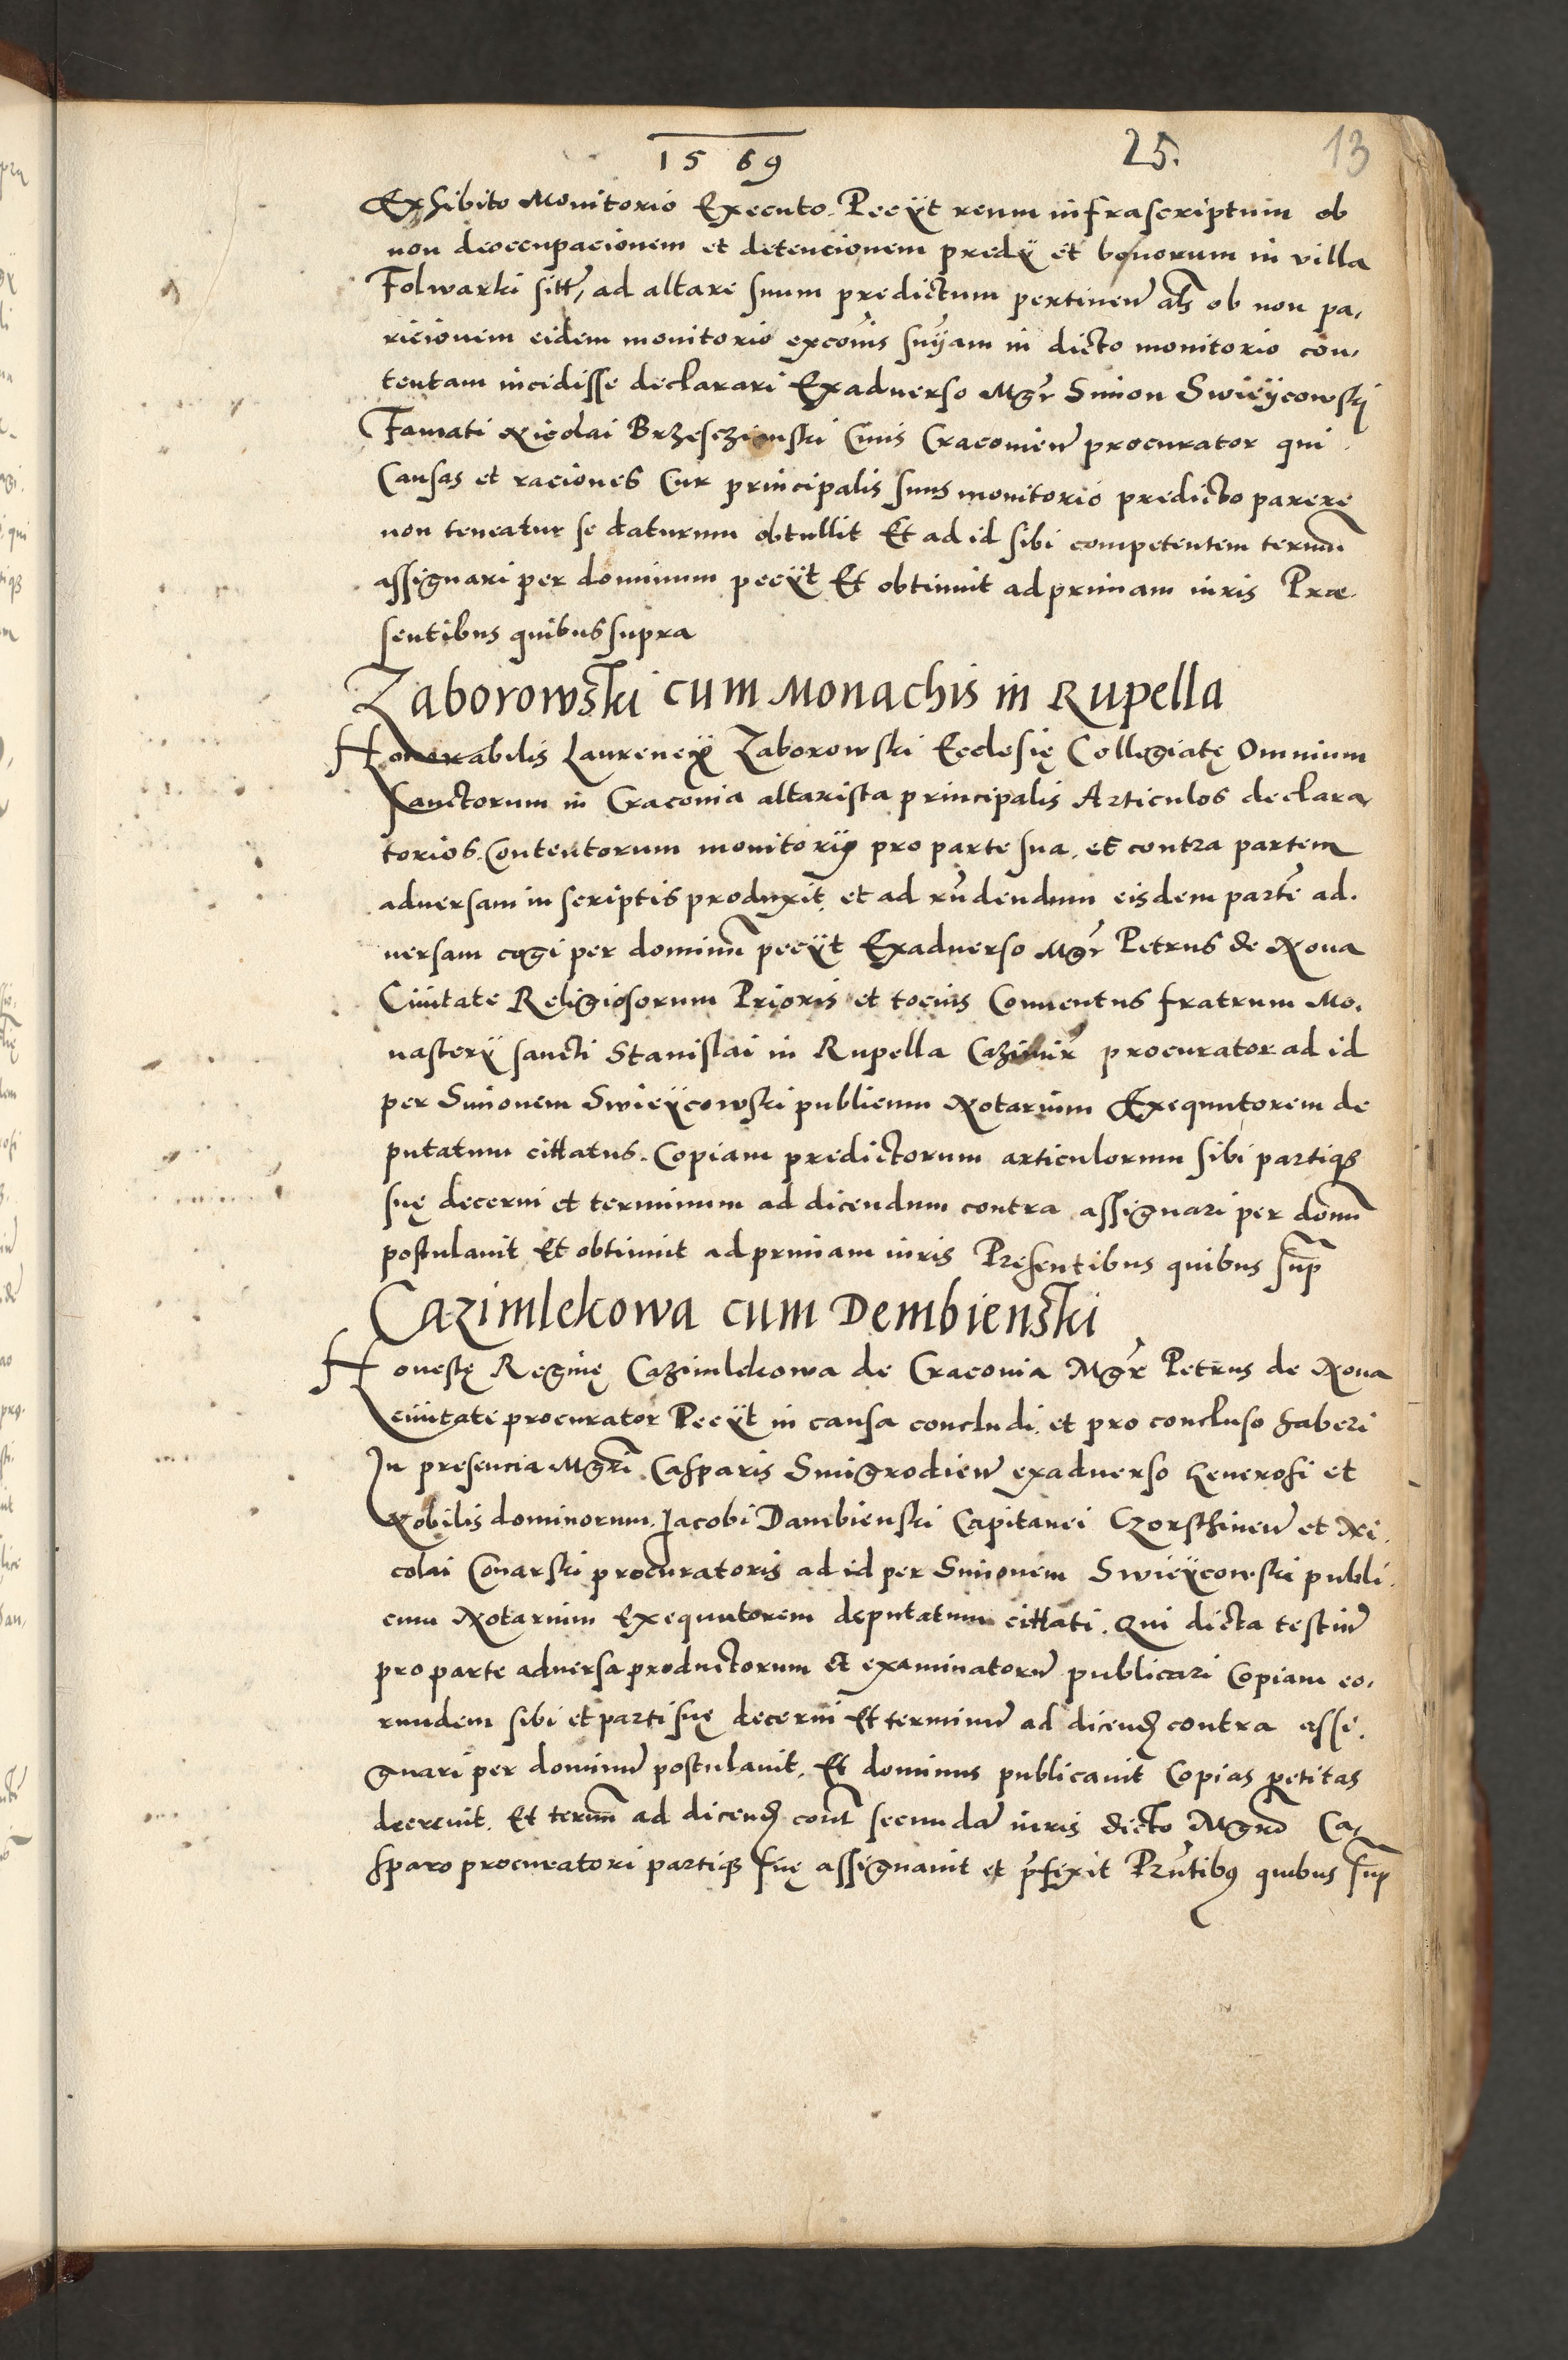 1569 25. 13
Exhibito Monitorio Executo. Peeÿt reum infrascriptum ob
non deoccupacionem et detencionem predÿ et bonorum in villa
Folwarki sitt, ad altare suum predictum pertinen als ob non pa,
ricionem eidem monitorio excōis snÿam in dicto monitorio con,
tentam incidisse declarari Exaduerso Mgr Simon Swieÿcowski
Famati Nicolai Brzesczienski Ciuis Cracouien procurator qui
Causas et raciones Cur principalis suus monitorio predicto parere
non teneatur se daturum obtullit Et ad id sibi competentem termn
assignari per dominum peeÿt Et obtinuit ad primam iuris Præ.
sentibus quibus supra
Zaborowski cum Monachis in Rupella
Honorabilis Laurencÿ Zaborowski Ecclesię Collegiatę Omnium
Sanctorum in Cracouia altarista principalis Articulos declara,
torios. Contentorum monitorÿ pro parte sua. et contra partem
aduersam in scriptis produxit. et ad rndendum eisdem parte ad.
uersam cogi per dominū peeÿt Exaduerso Mgr Petrus de Noua
Ciuitate Religiosorum Prioris et tocius Conuentus fratrum Mo.
nasterÿ sancti Stanislai in Rupella Cazimir procurator ad id
per Simonem Swieÿcowski publicum Notarium Exequutorem de
putatum cittatus. Copiam predictorum articulorum sibi partiq3
suę decerni et terminum ad dicendum contra assignari per domn
postulauit Et obtinuit ad primam iuris Presentibus quibus sup
Cazimlekowa cum Dembienski
Honestę Reginę Cazimlekowa de Cracouia Mgr Petrus de Noua
ciuitate procurator Peeÿt in causa concludi. et pro concluso haberi
In presencia Mgri Casparis Smigrodien exaduerso Generosi et
Nobilis dominorum Jacobi Dambienski Capitanei Czorsthinen et Ni.
colai Conarski procuratoris ad id per Simonem Swieÿcowski publi.
cum Notarium Exequutorem deputatum cittati. Qui dicta testiū
pro parte aduersa productorum et examinatorū publicari Copiam eo,
rundem sibi et parti suę decerni Et terminū ad dicend contra assi.
gnari per dominū postulauit. Et dominus publicauit Copias petitas
decreuit. Et termn ad dicend cont secundā iuris dicto Mgro Ca,
sparo procuratori partiq3 suę assignauit et p̄fixit Prntibus quibus sup